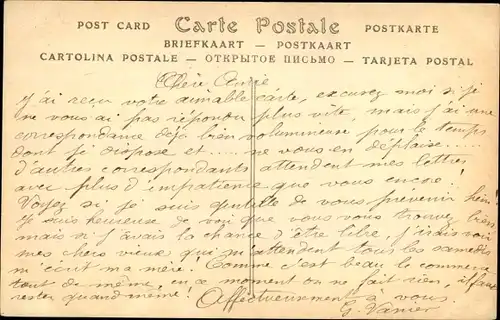 POST CARD Carte Postale POSTKARTE
BRIEFKAART — POSTKAART
CARTOLINA POSTALE — ОТКРЫТОЕ ПИСЬМО — TARJETA POSTAL
Chère Amie
J'ai reçu votre aimable carte, excusez moi si je
ne vous ai pas répondu plus vite, mais j'ai une
correspondance déjà bien volumineuse pour le temps
dont je dispose et .... ne vous en déplaise....
D'autres correspondants attendent mes lettres
avec plus d'impatience que vous encore!
Voyez si je suis de vous prévenir hein!
Je suis heureuse de voir que vous vous trouvez bien,
mais si j'avais la chance d'être libre j'irais voir
mes chers vieux qui m'attendent tous les samedis
m'écrit ma mère! Comme c'est beau le commerce
tout de même, en ce moment on ne fait rien, il faut
rester quand même! Affectueusement à vous.
G. Vanier